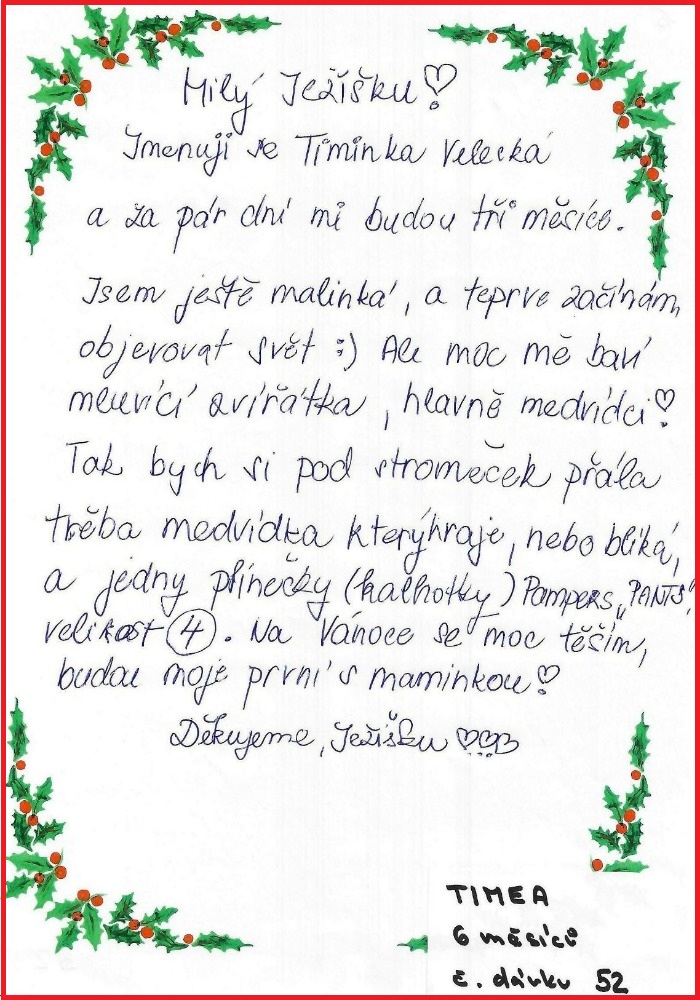 Milý Ježíšku!
Jmenuji se Timinka Velecká
a za pár dní mi budou tři měsíce.
Jsem ještě malinká, a teprve začínám,
objevovat svět :) Ale moc mě baví
mluvící zvířátka, hlavně medvídci!
Tak bych si pod stromeček přála
třeba medvídka který hraje, nebo bliká,
a jedny plínečky (kalhotky) Pampers „PANTS"
velikost 4. Na Vánoce se moc těším,
budou moje první s maminkou!
Děkujeme, Ježíšku
TIMEA
6 měsíců
č. dárku 52